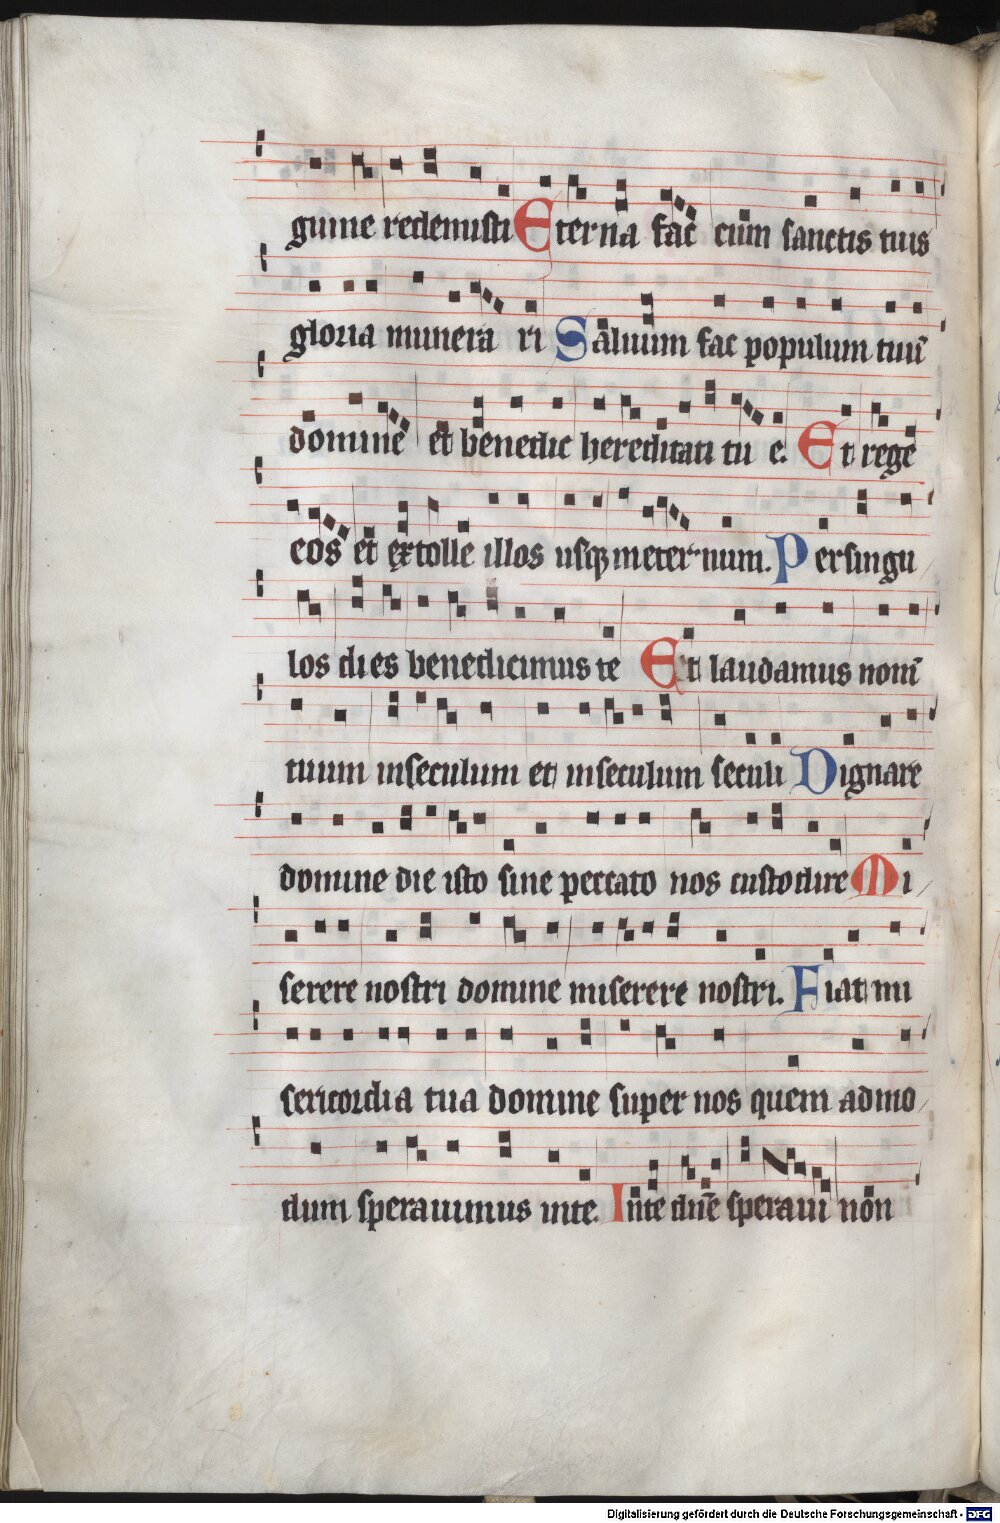 guine redemisti Eterna fac cum sanctis tuis
gloria munera ri Saluum fac populum tuū
domine et benedic hereditati tu e. Et rege
eos et extolle illos usq; in eternum. Per singu
los dies benedicimus te Et laudamus nomē
tuum in seculum et in seculum seculi Dignare
domine die isto sine peccato nos custodire Mi
serere nostri domine miserere nostri. Fiat mi
sericordia tua domine super nos quem admo
dum sperauimus in te. In te dn̄e speraui non
Digitalisierung gefördert durch die Deutsche Forschungsgemeinschaft - DFG